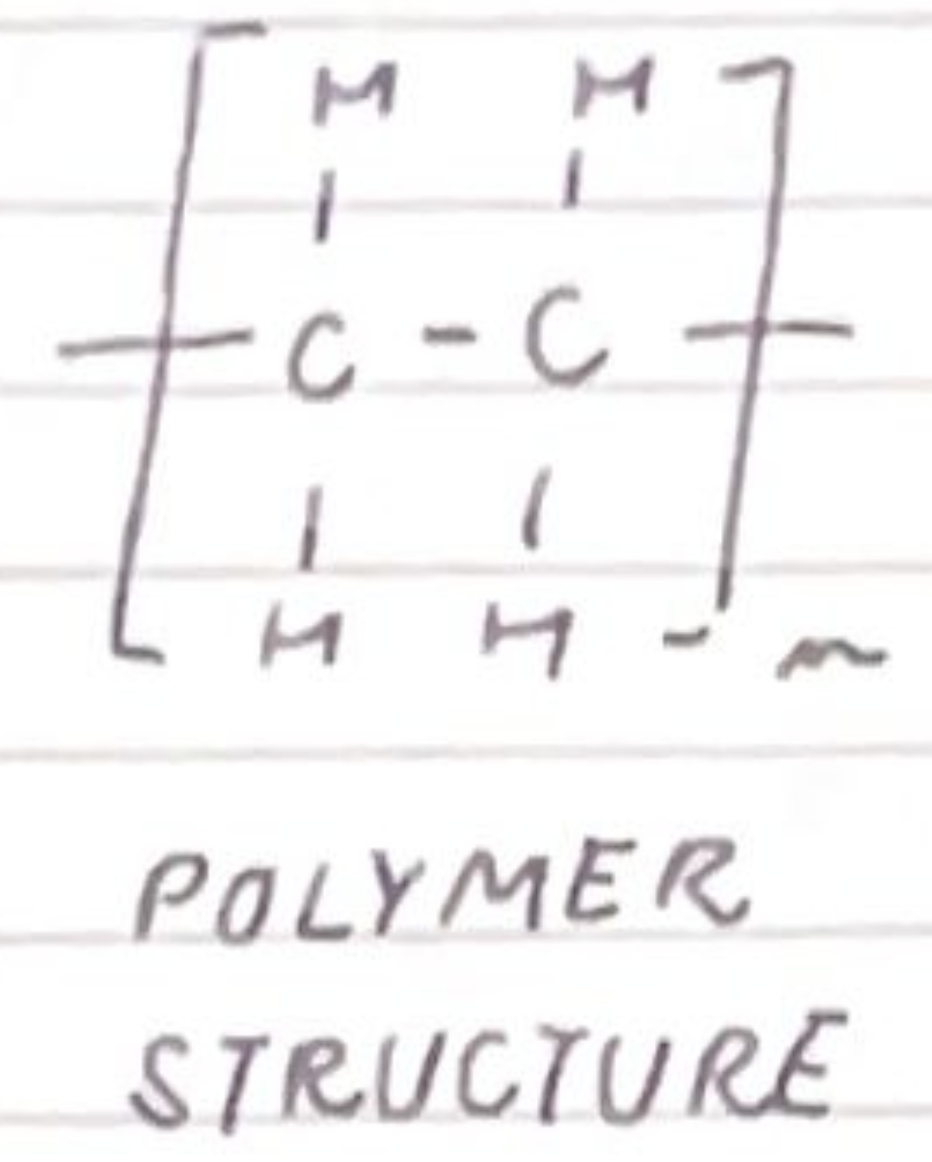 H H
C - C
H H n
POLYMER
STRUCTURE